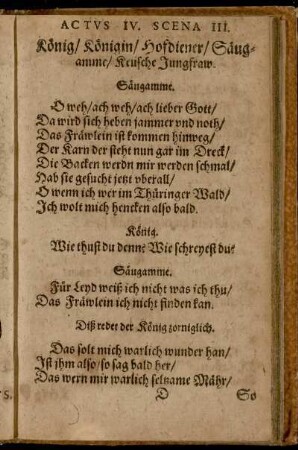 ACTVS IV. SCENA III.
König/ Königin/ Hofdiener/ Säug-
amme/ Keusche Jungfraw.
Säugamme.
O weh/ ach weh/ ach lieber Gott/
Da wird sich heben jammer vnd noth/
Das Fräwlein ist kommen hinweg/
Der Karn der steht nun gar im Dreck/
Die Backen werdn mir werden schmal/
Hab sie gesucht jetzt vberall/
O wenn ich wer im Thüringer Wald/
Ich wolt mich hencken also bald.
König.
Wie thust du denn? Wie schreyest du?
Säugamme.
Für Leyd weiß ich nicht was ich thu/
Das Fräwlein ich nicht finden kan.
Diß redet der König zorniglich.
Das solt mich warlich wunder han/
Ist jhm also/ so sag bald her/
Das wern mir warlich seltzame Mähr/
D So